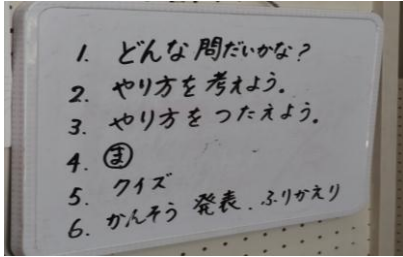 1. どんな問だいかな?
2. やり方を考えよう。
3. やり方をつたえよう。
4. ㋮
5. クイズ
6. かんそう 発表、ふりかえり